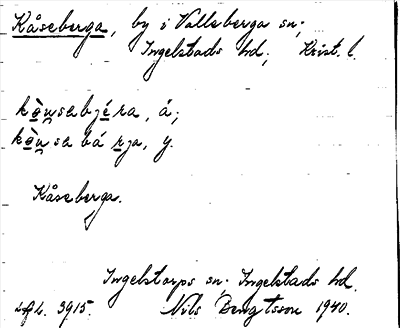 Kåseberga, by i Valleberga sn;
Ingelstads hd; Krist. l.
kòu̯sabjéra, á;
kòu̯sabárja, y.
Kåseberga.
Ingelstorps sn; Ingelstads hd.
3915. Nils Bengtsson 1940.